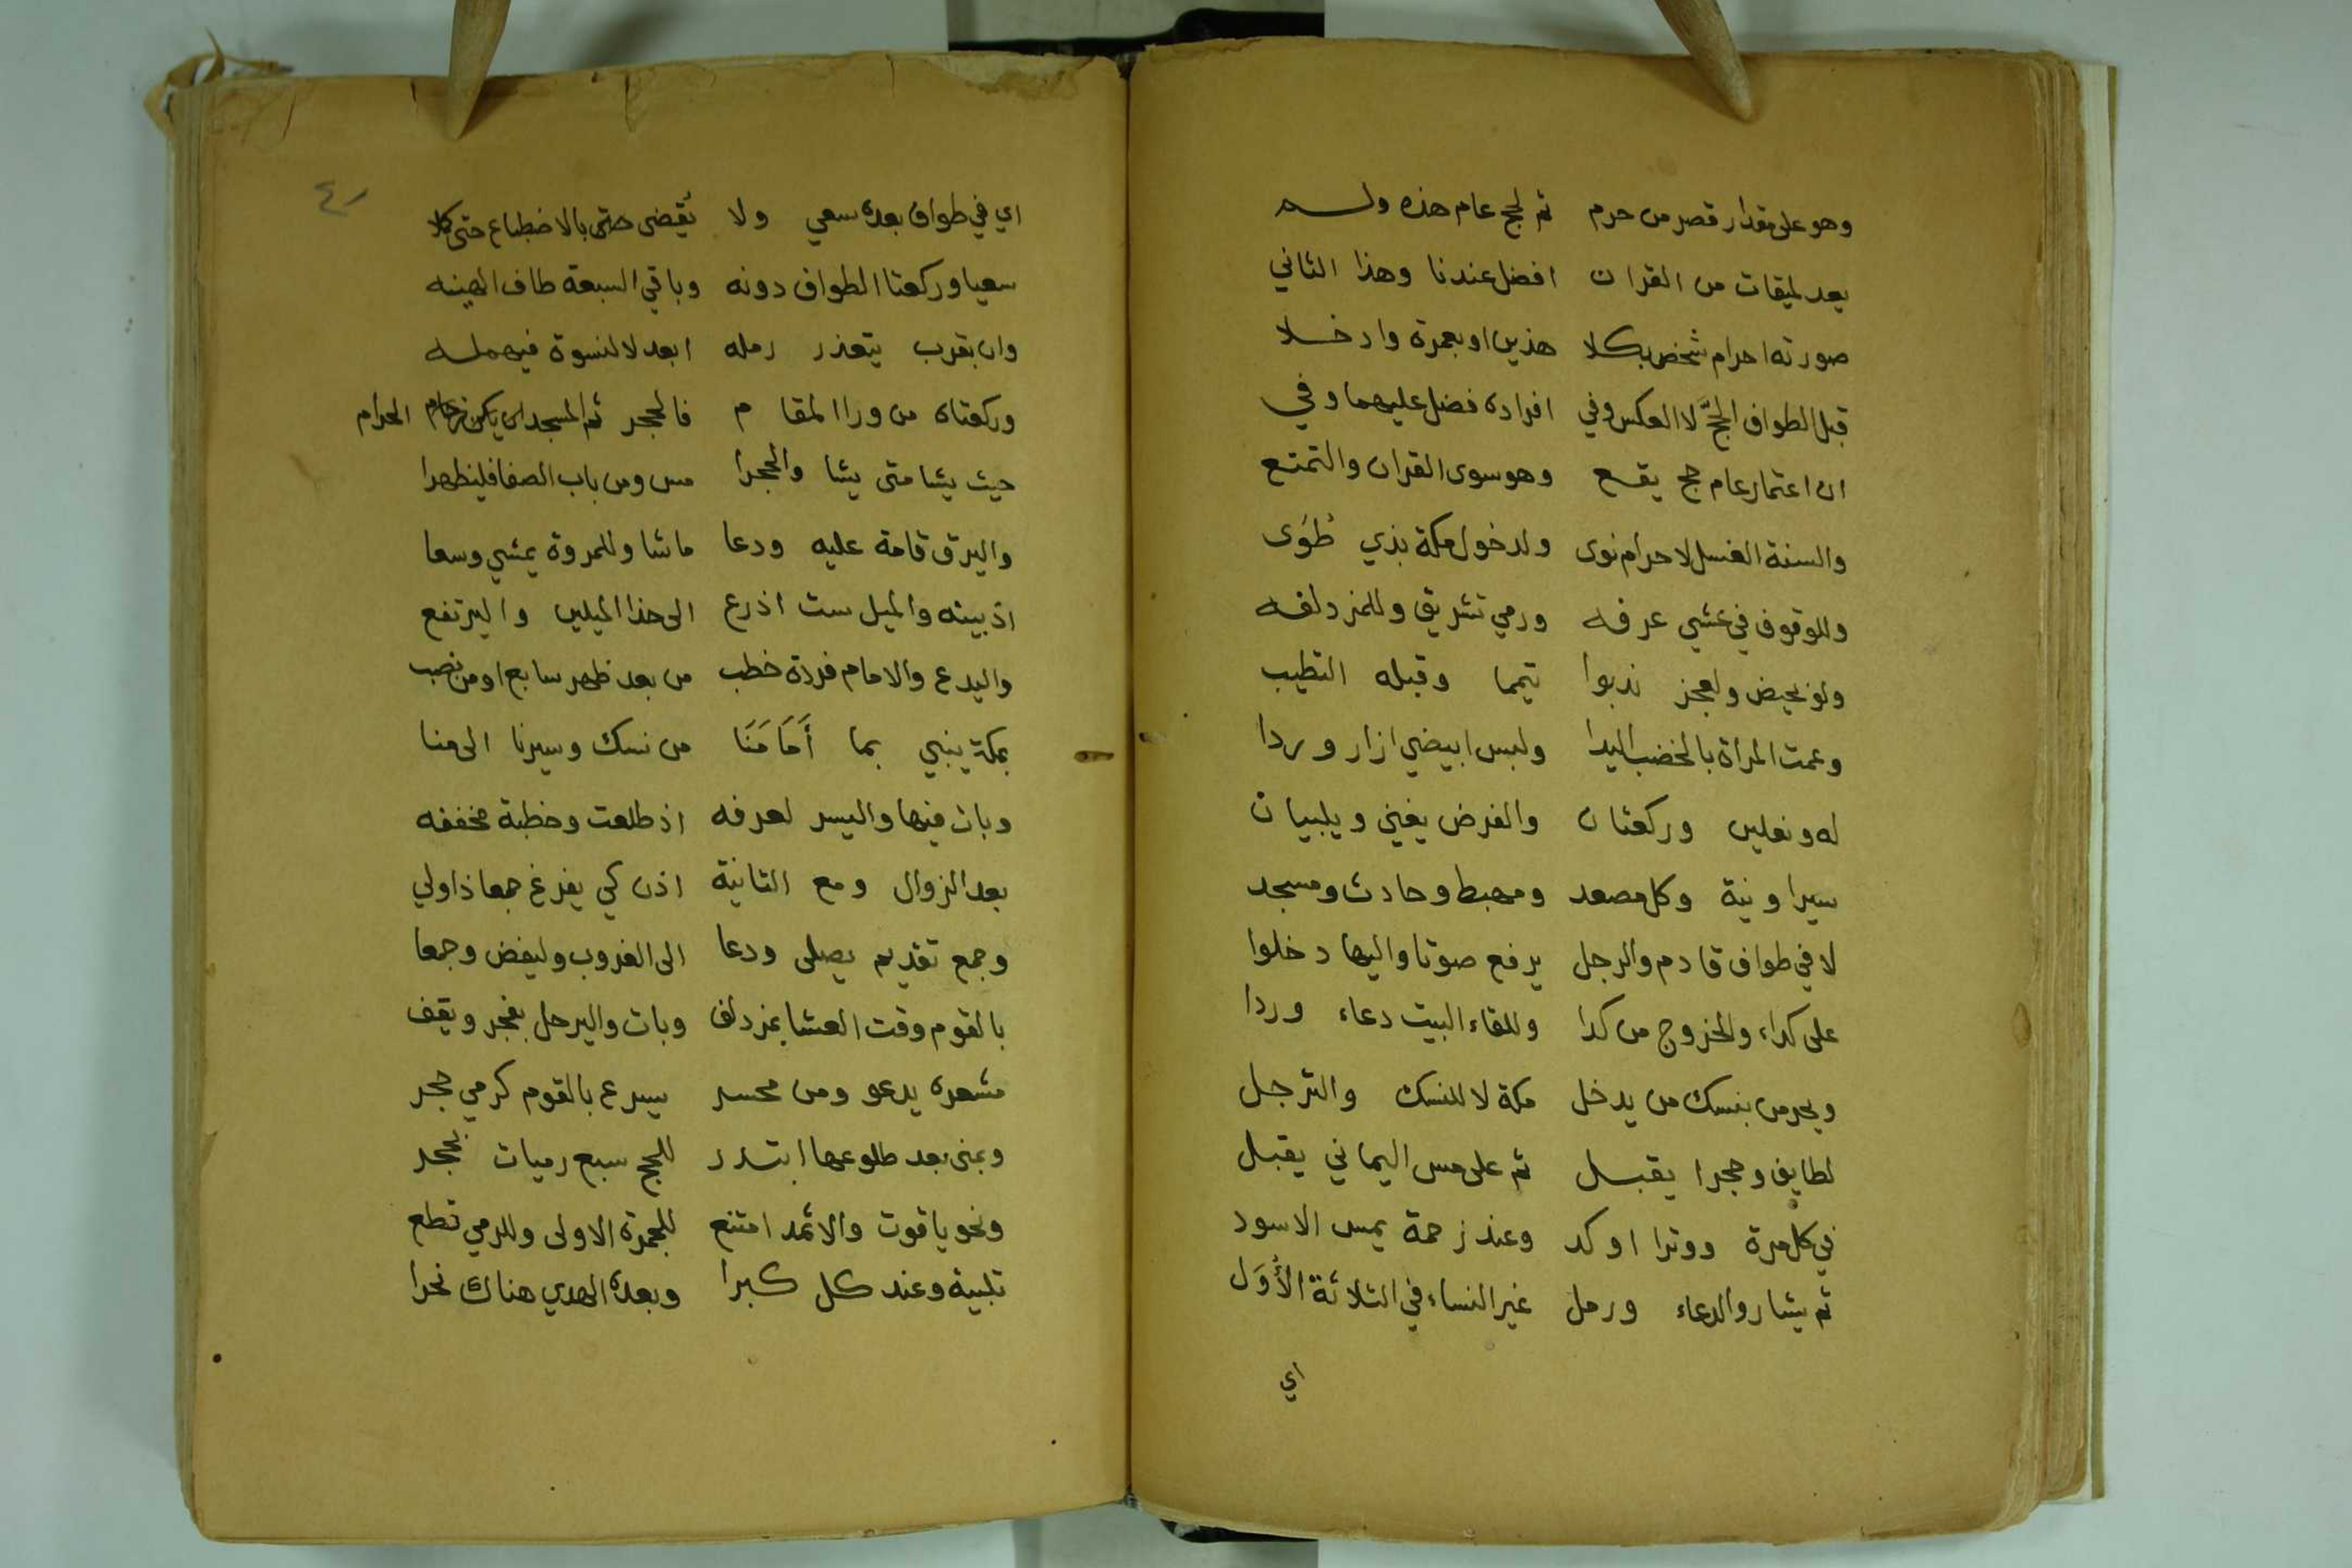 وهو على مقدار قصر من حرم ثم لحج عام هذه ولم
يعد لميقات من القران افضل عندنا وهذا الثاني
صورته احرام شخص بكلا هذين او بعمرة وادخلا
قبل الطواف الحجَّ لا العكس وفي افراده فضل عليهما وفي
ان اعتمار عام حج يقع وهو سوى القران والتمتع
والسنة الغسل لاحرام نوى ولدخول مكة بذي طُوَى
وللوقوف في عشي عرفه ورمي تشريق وللمزدلفه
ولو بحيض ولعجز ندبوا تيمما وقبله التطيب
وعمت المراة بالخضب اليدا ولبس ابيضي ازار وردا
له ونعلين وركعتان والفرض يغني ويلبيان
سيرا ونية وكل مصعد ومهبط وحادث ومسجد
لا في طواف قادم والرجل يرفع صوتا واليها دخلوا
على كداء والخروج من كدا وللقاء البيت دعاء وردا
ويحرمن بنسك من يدخل مكة لا للنسك والترجل
لطايف وحجرا يقبل ثم على مس اليماني يقبل
في كل مرة ووترا اوكد وعند زحمة يمس الاسود
ثم يشار والدعاء ورمل غير النساء في الثلاثة الأُوَل
اي
٤١
اي في طواف بعده سعي ولا يُقضى حتى بالاضطباع حتى كملا
سعيا وركعتا الطواف دونه وباقي السبعة طاف الهينه
وان بقرب يتعذر رمله ابعد لا لنسوة فيهمله
وركعتاه من ورا المقام فالحجر ثم المسجد ان يكن زحام الحرام
حيث يشا متى يشا والحجرا مس ومن باب الصفا فليظهرا
واليرق قامة عليه ودعا ما شا وللمروة يمشي وسعا
اذ بينه والميل ست اذرع الى حذا الميلين واليرتفع
واليدع والامام فردة خطب من بعد ظهر سابع او من نصب
بمكة ينبي بما أَمَامَنَا من نسك وسيرنا الى منا
وبات فيها واليسر لعرفه اذ طلعت وخطبة مخففه
بعد الزوال ومع الثانية اذن كي يفرغ جمعا ذا ولي
وجمع تقديم يصلى ودعا الى الغروب وليفض وجمعا
بالقوم وقت العشا بمزدلف وبات واليرحل بفجر ويقف
مشعره يدعو ومن محسر يسرع بالقوم كرمي حجر
وبمنى بعد طلوعها ابتدر للحج سبع رميات بحجر
ونحو ياقوت والاثمد امتنع للجمرة الاولى وللرمي قطع
تلبية وعند كل كبرا وبعده الهدي هناك نحرا